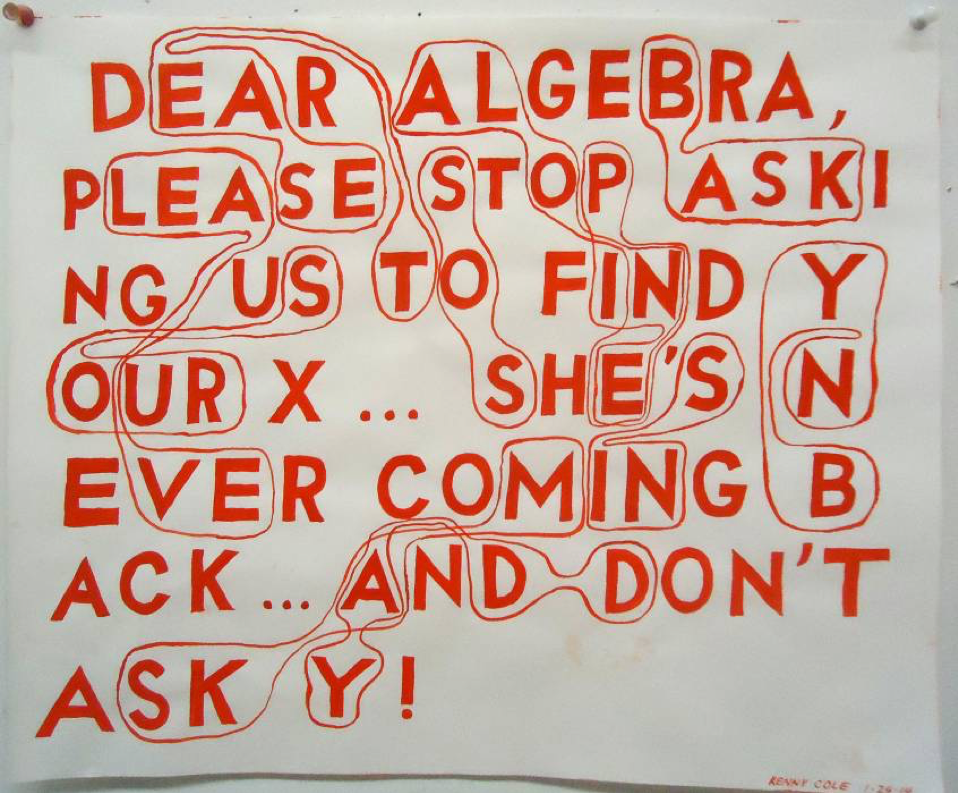 DEAR ALGEBRA,
PLEASE STOP ASKI
NG US TO FIND Y
OUR X ... SHE'S N
EVER COMING B
ACK ... AND DON'T
ASK Y!
KENNY COLE